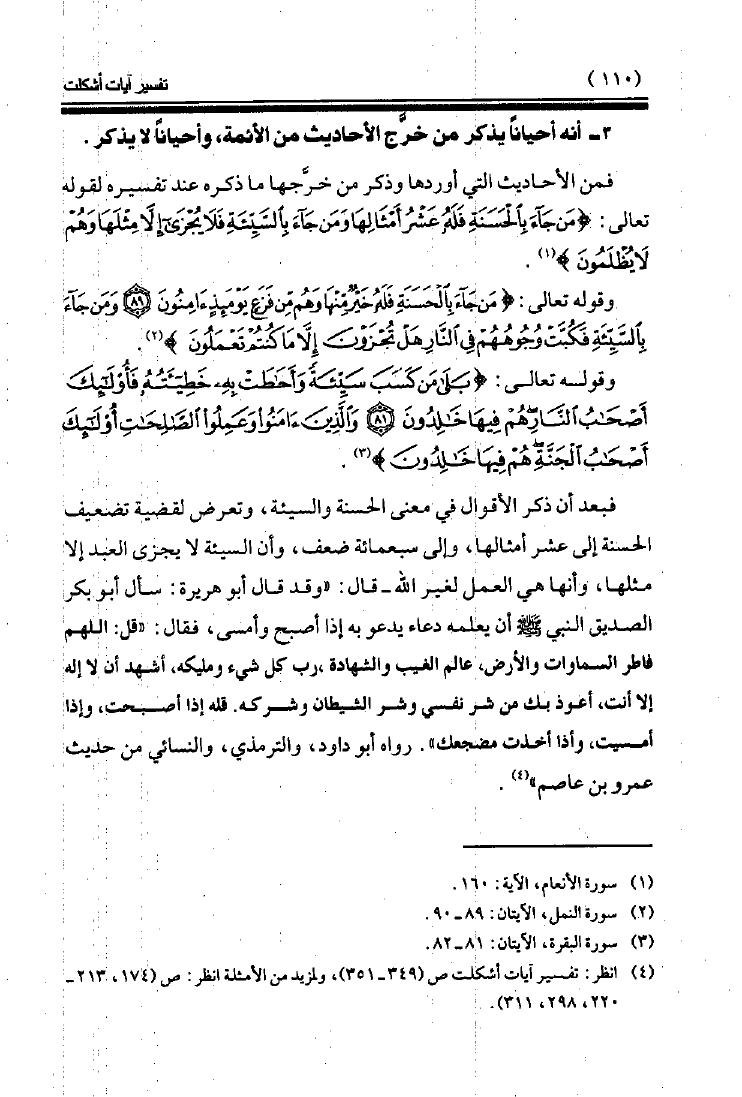 (١١٠)
تفسير آيات أشكلت
٢ـ أنه أحياناً يذكر من خرَّج الأحاديث من الأئمة، وأحياناً لا يذكر .
فمن الأحاديث التي أوردها وذكر من خرَّجها ما ذكره عند تفسيره لقوله
تعالى : ﴿ مَن جَآءَ بِٱلْحَسَنَةِ فَلَهُۥ عَشْرُ أَمْثَالِهَا وَمَن جَآءَ بِٱلسَّيِّئَةِ فَلَا يُجْزَىٰٓ إِلَّا مِثْلَهَا وَهُمْ
لَا يُظْلَمُونَ ﴾(١) .
وقوله تعالى : ﴿ مَن جَآءَ بِٱلْحَسَنَةِ فَلَهُۥ خَيْرٌ مِّنْهَا وَهُم مِّن فَزَعٍ يَوْمَئِذٍ ءَامِنُونَ ٨٩ وَمَن جَآءَ
بِٱلسَّيِّئَةِ فَكُبَّتْ وُجُوهُهُمْ فِى ٱلنَّارِ هَلْ تُجْزَوْنَ إِلَّا مَا كُنتُمْ تَعْمَلُونَ ﴾(٢).
وقولـه تعالـى : ﴿ بَلَىٰ مَن كَسَبَ سَيِّئَةً وَأَحَٰطَتْ بِهِۦ خَطِيٓـَٔتُهُۥ فَأُو۟لَٰٓئِكَ
أَصْحَٰبُ ٱلنَّارِ هُمْ فِيهَا خَٰلِدُونَ ٨١ وَٱلَّذِينَ ءَامَنُوا۟ وَعَمِلُوا۟ ٱلصَّٰلِحَٰتِ أُو۟لَٰٓئِكَ
أَصْحَٰبُ ٱلْجَنَّةِ هُمْ فِيهَا خَٰلِدُونَ ﴾(٣) .
فبعد أن ذكر الأقوال في معنى الحسنة والسيئة، وتعرض لقضية تضعيف
الحسنة إلى عشر أمثالها، وإلى سبعمائة ضعف، وأن السيئة لا يجزى العبد إلا
مثلها، وأنها هي العمل لغير الله ـ قال : «وقد قال أبو هريرة : سأل أبو بكر
الصديق النبي ﷺ أن يعلمه دعاء يدعو به إذا أصبح وأمسى، فقال : «قل: اللهم
فاطر السماوات والأرض، عالم الغيب والشهادة ،رب كل شيء ومليكه، أشهد أن لا إله
إلا أنت، أعوذ بك من شر نفسي وشر الشيطان وشركه. قله إذا أصبحت، وإذا
أمسيت، وأذا أخذت مضجعك» . رواه أبو داود، والترمذي، والنسائي من حديث
عمرو بن عاصم»(٤) .
(١) سورة الأنعام، الآية : ١٦٠ .
(٢) سورة النمل، الآيتان : ٨٩ـ٩٠.
(٣) سورة البقرة، الآيتان : ٨١ـ٨٢.
(٤) انظر : تفسير آيات أشكلت ص (٣٤٩ـ٣٥١)، ولمزيد من الأمثلة انظر : ص (١٧٤، ٢١٣ـ
٢٢٠، ٢٩٨، ٣١١).